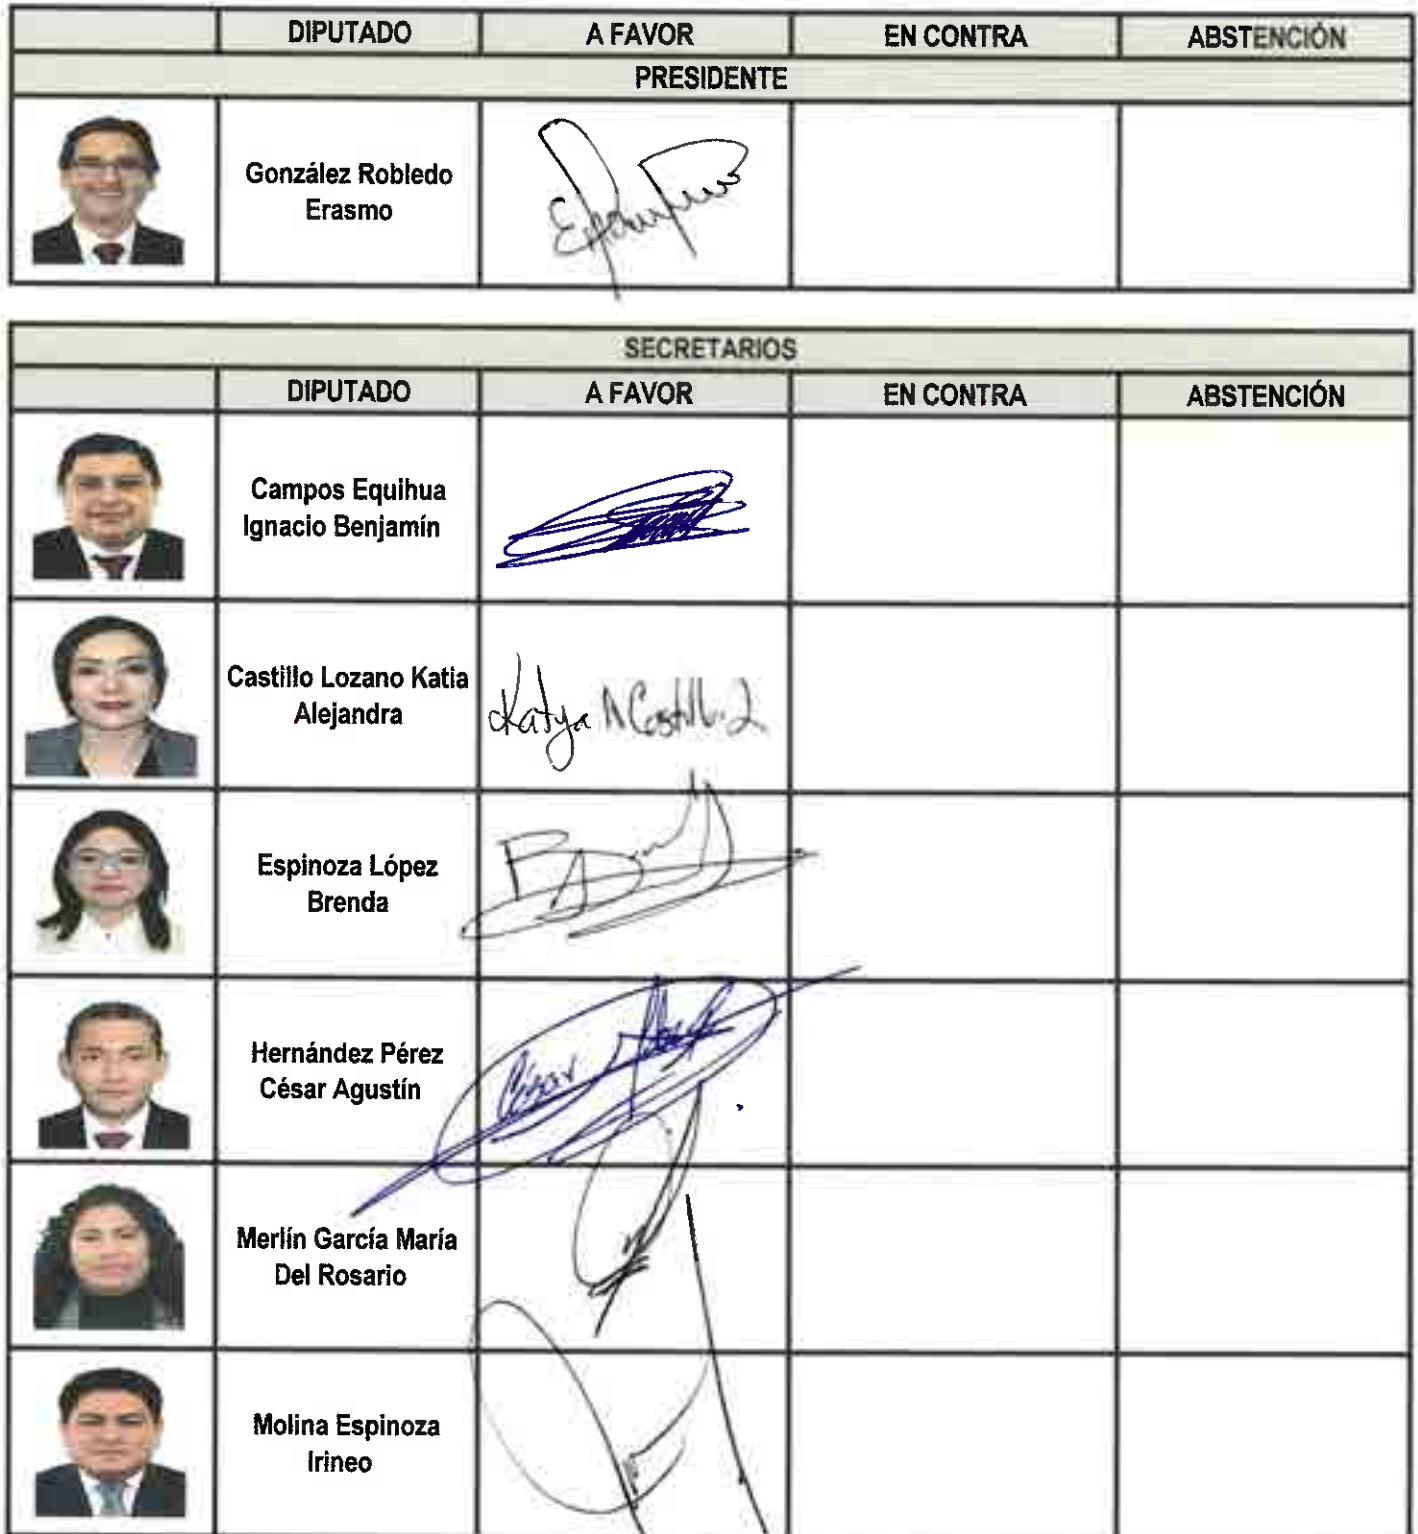 DIPUTADO A FAVOR EN CONTRA ABSTENCIÓN
PRESIDENTE
González Robledo
Erasmo
SECRETARIOS
DIPUTADO A FAVOR EN CONTRA ABSTENCIÓN
Campos Equihua
Ignacio Benjamín
Castillo Lozano Katia
Alejandra
Katya A Castillo L
Espinoza López
Brenda
Hernández Pérez
César Agustín
César
Merlín García María
Del Rosario
Molina Espinoza
Irineo